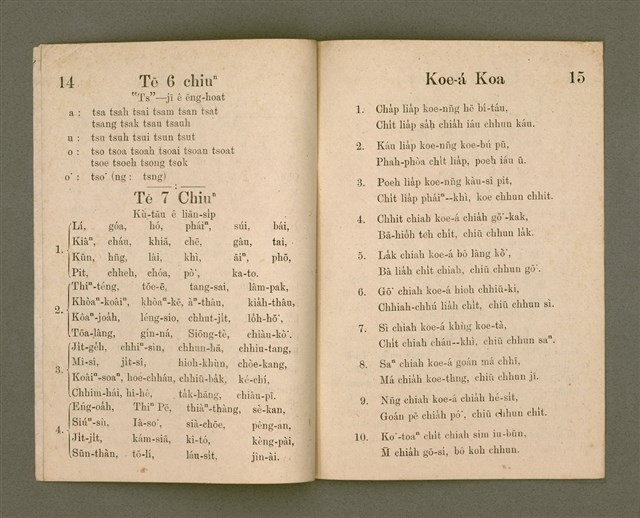 14
Tē 6 chiuⁿ
“Ts”—jī ê ēng-hoat
a : tsa tsah tsai tsam tsan tsat
tsang tsak tsau tsauh
u : tsu tsuh tsui tsun tsut
o : tso tsoa tsoah tsoai tsoan tsoat
tsoe tsoeh tsong tsok
o͘ : tso͘ (ng : tsng)
Tē 7 Chiuⁿ
Kù-tāu ê liān-si̍p
1. Lí, góa, hó, pháiⁿ, súi, bái,
Kiâⁿ, cháu, khiā, chē, gâu, tai,
Kūn, hn̄g, lâi, khì, āiⁿ, phō,
Pit, chheh, chóa, pò͘, ka-to.
2. Thiⁿ-téng, tōe-ē, tang-sai, lâm-pak,
Khòaⁿ-koàiⁿ, khòaⁿ-kē, àⁿ-thàu, kia̍h-thâu,
Kôaⁿ-joa̍h, léng-sio, chhut-ji̍t, lo̍h-hō͘,
Tōa-lâng, gín-ná, Siōng-tè, chiàu-kò͘.
3. Ji̍t-ge̍h, chhiⁿ-sin, chhun-hā, chhiu-tang,
Mî-sî, ji̍t-sî, hioh-khùn, chòe-kang,
Koâiⁿ-soaⁿ, hoe-chháu, chhiū-ba̍k, ké-chí,
Chhim-hái, hî-hê, ta̍k-hāng, chiàu-pī.
4. Eng-oa̍h, Thiⁿ Pē, thiāⁿ-thàng, sè-kan,
Siúⁿ-sin, Iâ-so͘, sià-chōe, pêng-an,
Ji̍t-ji̍t, kám-siā, kî-tó, kèng-pài,
Sūn-thàn, tō-lí, láu-si̍t, jîn-ài.
Koe-á Koa
15
1. Cha̍p lia̍p koe-nn̄g hē bí-táu,
Chi̍t lia̍p sa̍h chia̍h iáu chhun káu.
2. Káu lia̍p koe-nn̄g koe-bú pū,
Phah-phòa chi̍t lia̍p, poeh iáu ū.
3. Poeh lia̍p koe-nn̄g kàu-sî pit,
Chi̍t lia̍p pháiⁿ--khì, koe chhun chhit.
4. Chhit chiah koe-á chia̍h gō͘-kak,
Bā-hio̍h teh chi̍t, chiū chhun la̍k.
5. La̍k chiah koe-á bô lâng kò͘,
Bâ lia̍h chi̍t chiah, chiū chhun gō͘.
6. Gō͘ chiah koe-á hioh chhiū-ki,
Chhiah-chhú lia̍h chi̍t, chiū chhun sì.
7. Sì chiah koe-á khǹg koe-tà,
Chi̍t chiah cháu--khì, chiū chhun saⁿ.
8. Saⁿ chiah koe-á goán má chhī,
Má chia̍h koe-thng, chiū chhun jī.
9. Nn̄g chiah koe-á chia̍h hé-si̍t,
Goán pē chia̍h pó͘, chiū chhun chi̍t.
10. Ko͘-toaⁿ chi̍t chiah sim iu-būn,
M̄ chia̍h gō-sí, bô koh chhun.